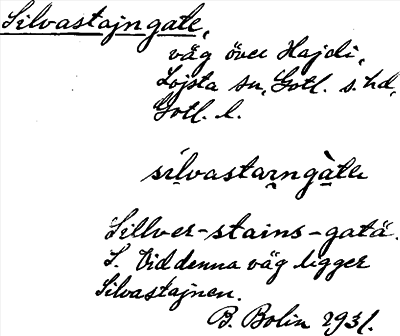 Silvastajngate,
väg över Hajdi,
Lojsta sn, Gotl. s. hd,
Gotl. l.
silvastarngàtè
Sillver-stains-gatä.
S. Vid denna väg ligger
Silvastajnen.
B. Bolin 1931.